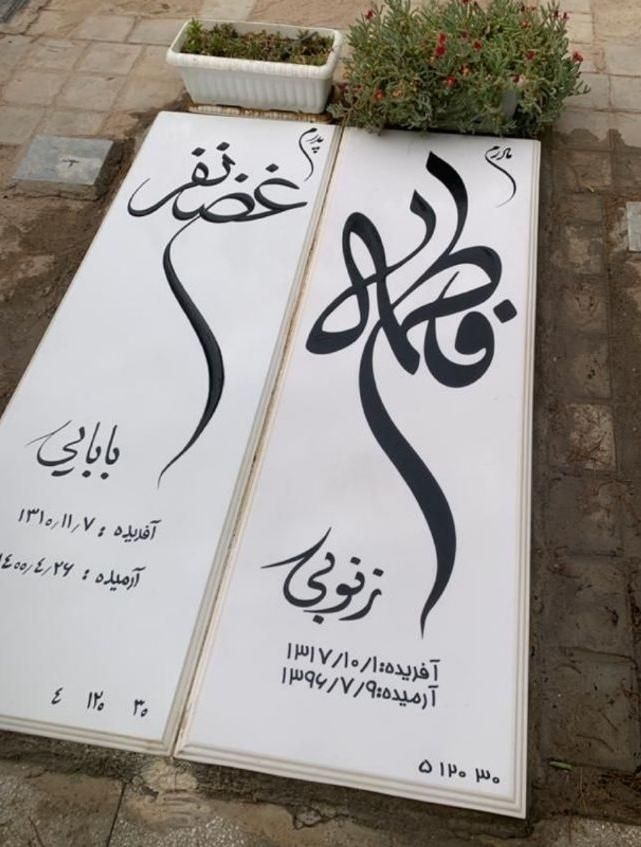 مادرم
فاطمه
زنوبی
آفریده:۱۳۱۷/۱۰/۱
آرمیده:۱۳۹۶/۷/۹
۵ ۱۲۰ ۳۰
پدرم
غضنفر
بابایی
آفریده : ۱۳۱۰/۱۱/۷
آرمیده : ۱۴۰۰/۴/۲۶
۴ ۱۲۰ ۳۰